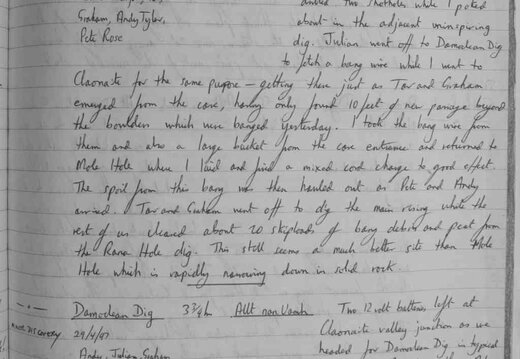 Graham, Andy Tyler,
Pete Rose
drilled two shotholes while I poked
about in the adjacent uninspiring
dig. Julian went off to Damoclean Dig
to fetch a bang wire while I went to
Claonaite for the same purpose – getting there just as Tav and Graham
emerged from the cave, having only found 10 feet of new passage beyond
the boulders which were banged yesterday. I took the bang wire from
them and also a large bucket from the cave entrance and returned to
Mole Hole where I laid and fired a mixed cord charge to good effect.
The spoil from this bang was then hauled out as Pete and Andy
arrived. Tav and Graham went off to dig the main rising while the
rest of us cleared about 20 skiploads of bang debris and peat from
the Rana Hole dig. This still seems a much better site than Mole
Hole which is rapidly narrowing down in solid rock.
Damoclean Dig 3 3/4 h Allt nan Uamh
29/4/97
Andy, Julian, Graham
Two 12 volt batteries left at
Claonaite valley junction as we
headed for Damoclean Dig in typical